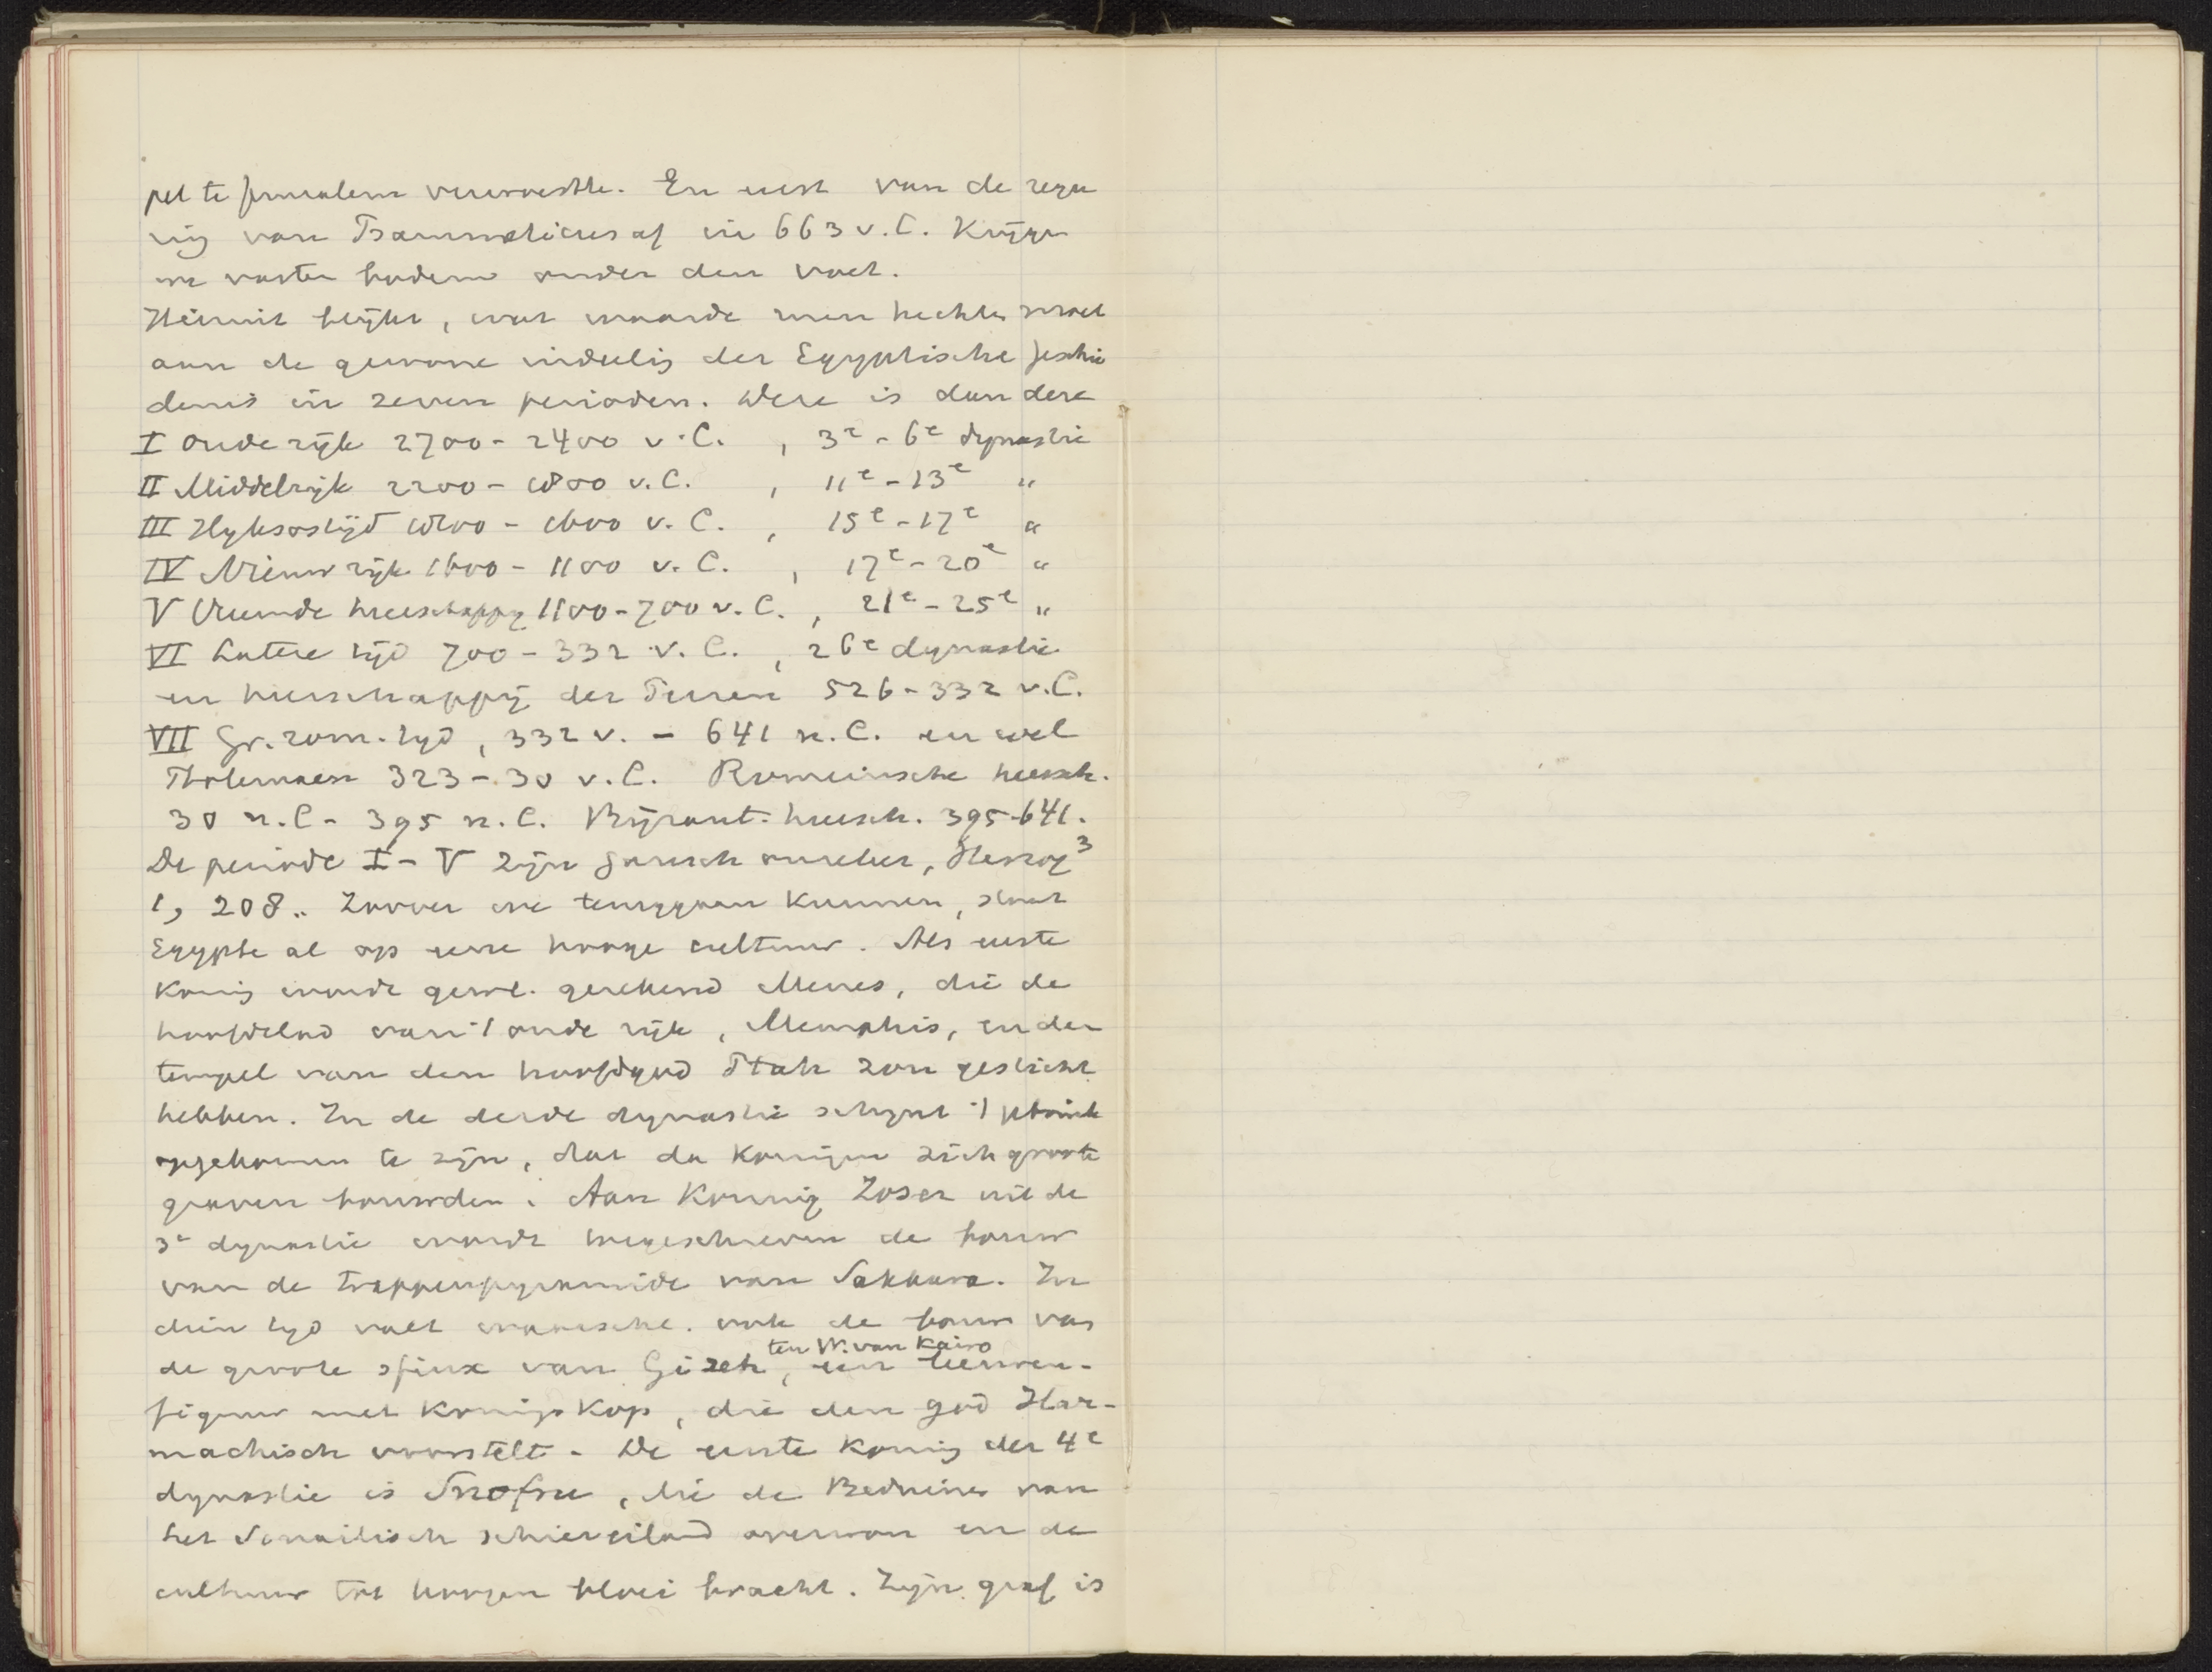 pel te Jerusalem verwoestte. En eerst van de rege
ring van Psammetichus af in 663 v.C. Krijgen
we vasten bodem onder den voet.
Hieruit blijkt, wat waarde men hechten moet
aan de gewone indeeling der Egyptische geschie
denis in zeven perioden. Deze is dan deze
I Oude rijk 2700 - 2400 v.C. , 3e - 6e dynastie
II Middelrijk 2200 - 1800 v.C. , 11e - 13e "
III Hyksostijd 1800 - 1600 v.C. , 15e - 17e "
IV Nieuw rijk 1600 - 1100 v.C. , 17e - 20e "
V Vreemde heerschappij 1100 - 700 v.C. , 21e - 25e "
VI Latere tijd 700 - 332 v.C. , 26e dynastie
en heerschappij der Perzen 526 - 332 v.C.
VII Gr. rom. tijd, 332 v. - 641 n.C. en wel
Ptolemaeën 323 - 30 v.C. Romeinsche heersch.
30 n.C - 395 n.C. Byzant. heersch. 395-641.
De periode I - V zijn gansch onzeker, Herzog3
1, 208. Zoover we teruggaan kunnen, staat
Egypte al op eene hooge cultuur. Als eerste
Koning wordt gew. gerekend Menes, die de
hoofdstad van 't oude rijk, Memphis, en den
tempel van den hoofdgod Ptah zou gesticht
hebben. In de derde dynastie schijnt 't gebruik
opgekomen te zijn, dat de Koningen zich groote
graven bouwden. Aan Koning Zoser uit de
3e dynastie wordt toegeschreven de bouw
van de trappenpyramide van Sakkara. In
dien tijd valt waarsch. ook de bouw van
de groote sfinx van Gizeh, ten W. van Kairo een leeuwen-
figuur met Koningskop, die den god Har-
machisch voorstelt. De eerste Koning der 4e
dynastie is Snofru, die de Beduinen van
het Sinaitisch schiereiland overwon en de
cultuur tot hoogen bloei bracht. Zijn graf is